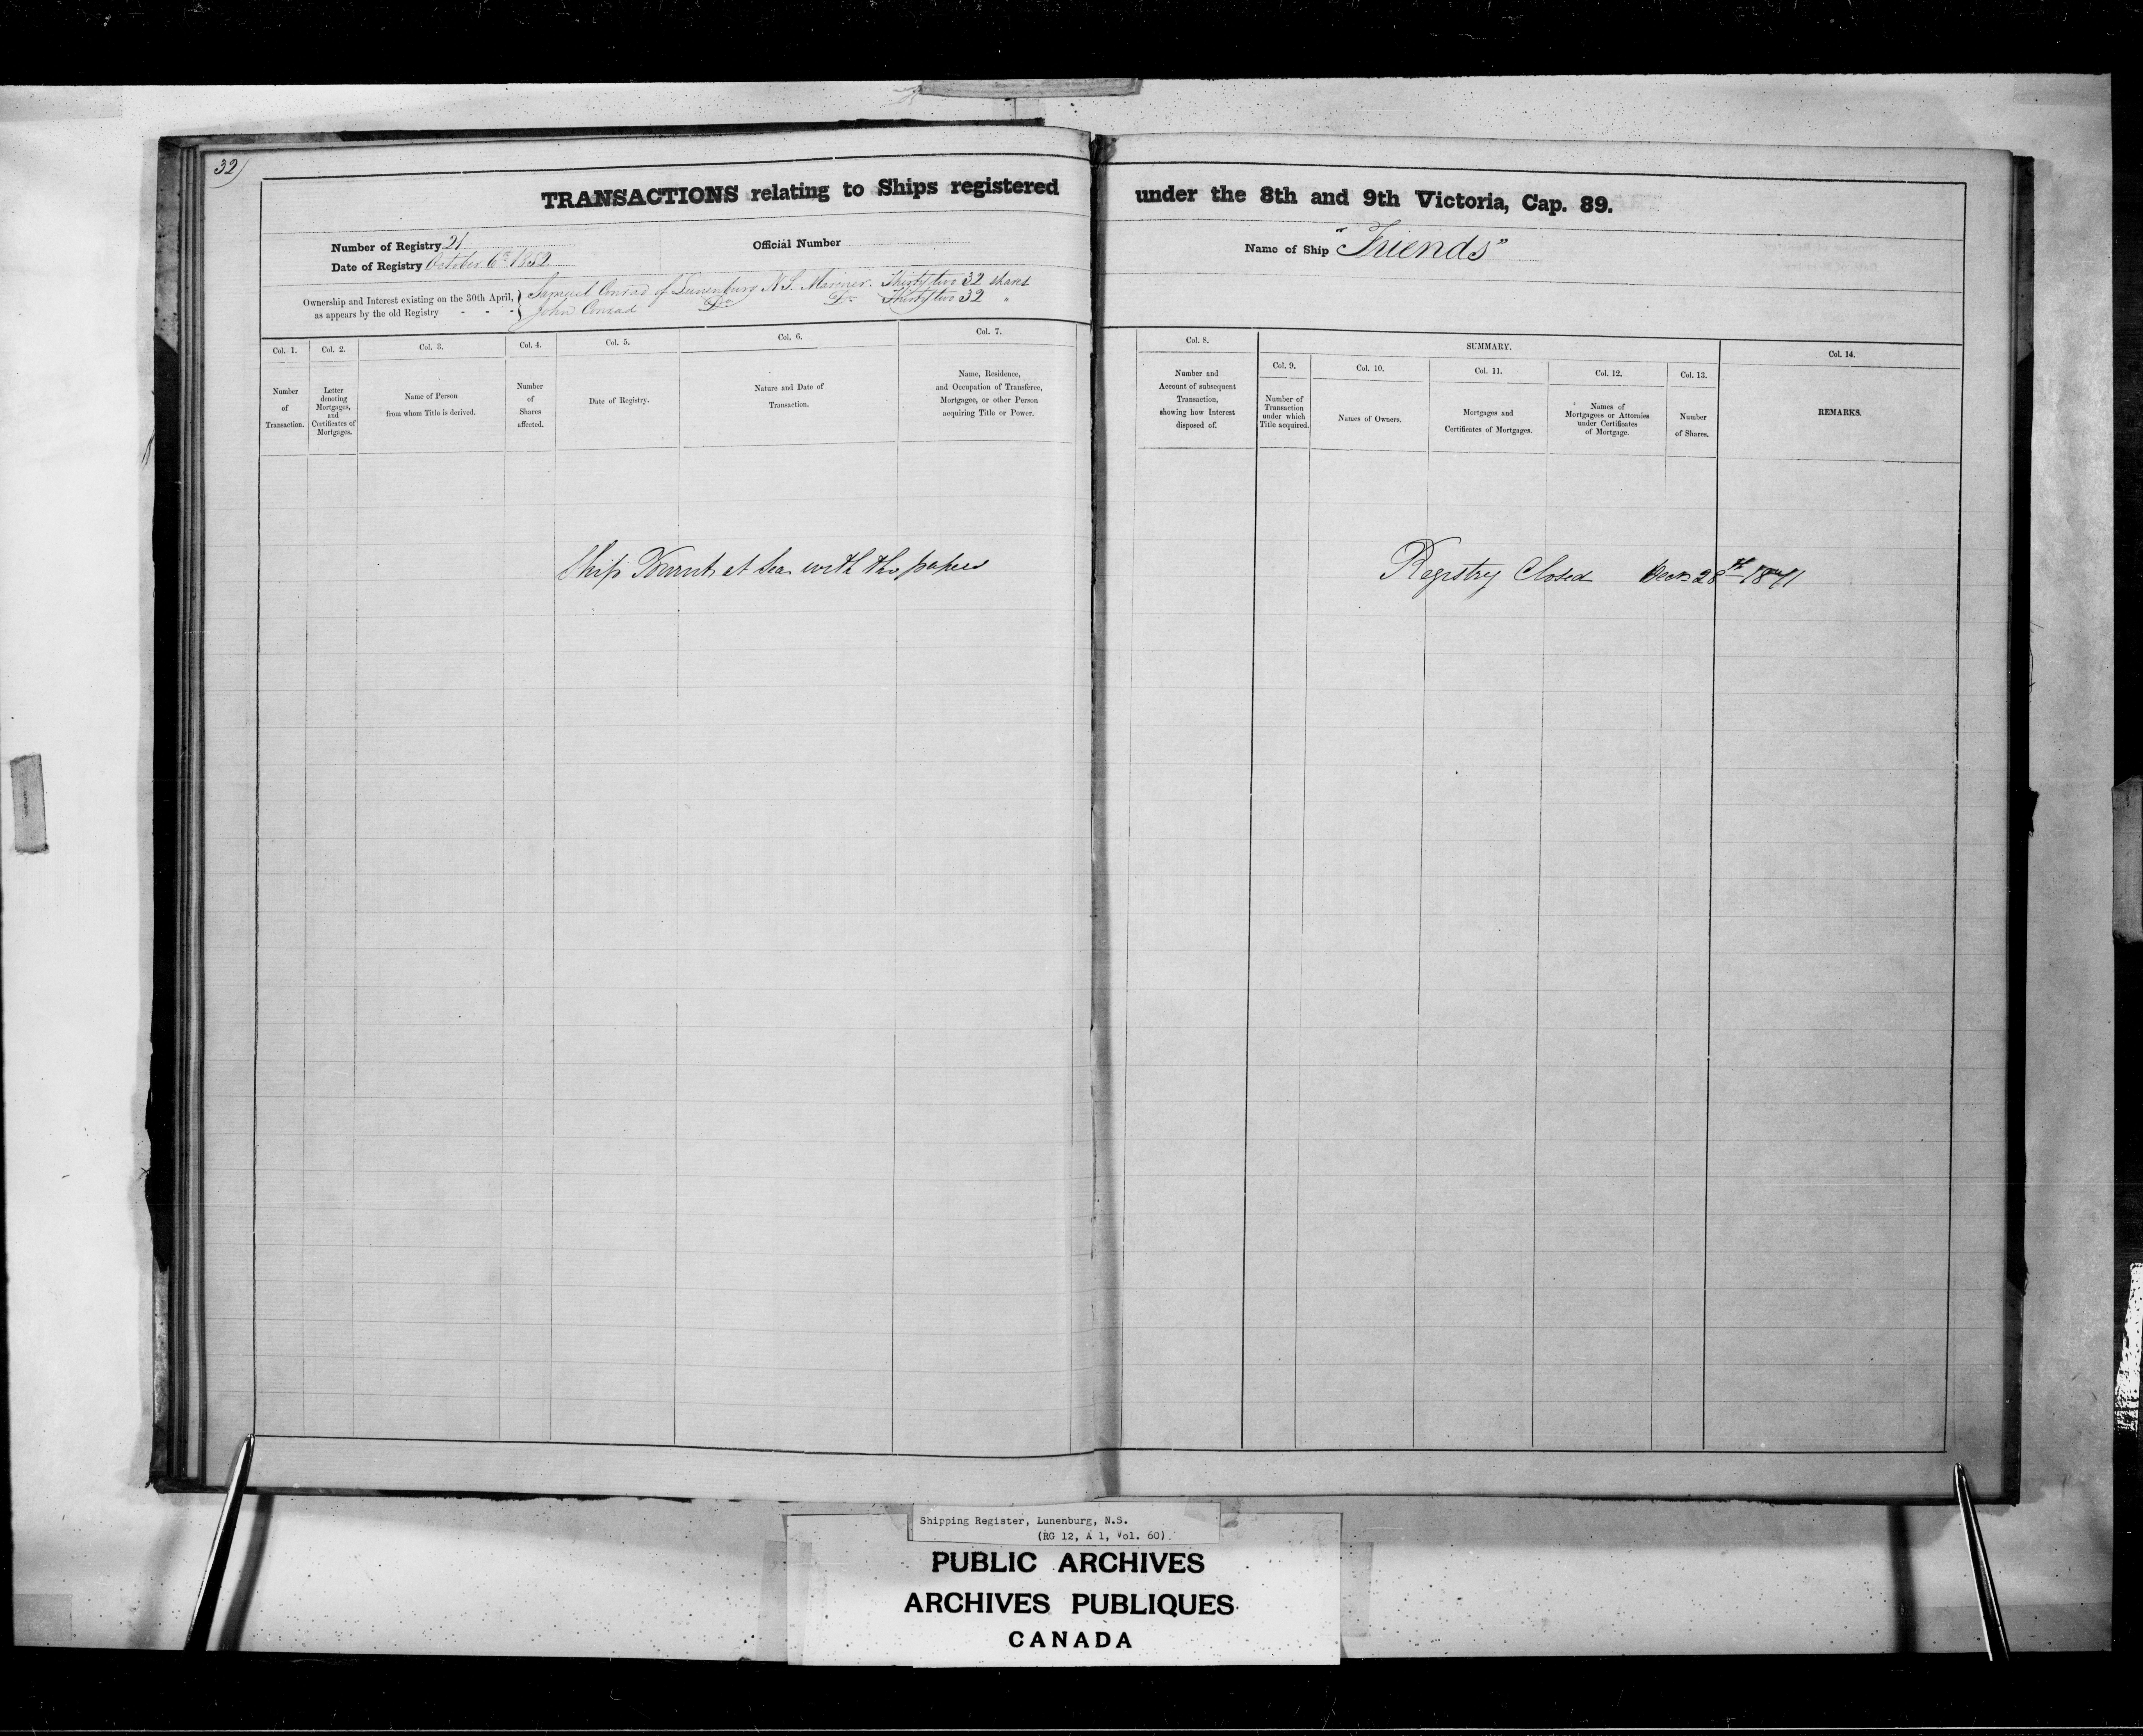 32)
TRANSACTIONS relating to Ships registered under the 8th and 9th Victoria, Cap. 89.
Number of Registry 21
Official Number
Name of Ship "Friends"
Date of Registry October 6th 1852
Ownership and Interest existing on the 30th April, as appears by the old Registry - - -
Samuel Conrad of Lunenburg N.S. Mariner. Thirty two 32 shares
John Conrad Do Do Thirty two 32 "
Col. 1.
Number
of
Transaction.
Col. 2.
Letter
denoting
Mortgages,
and
Certificates of
Mortgages.
Col. 3.
Name of Person
from whom Title is derived.
Col. 4.
Number
of
Shares
affected.
Col. 5.
Date of Registry.
Col. 6.
Nature and Date of
Transaction.
Col. 7.
Name, Residence,
and Occupation of Transferee,
Mortgagee, or other Person
acquiring Title or Power.
Col. 8.
Number and
Account of subsequent
Transaction,
showing how Interest
disposed of.
SUMMARY.
Col. 9.
Number of
Transaction
under which
Title acquired.
Col. 10.
Names of Owners.
Col. 11.
Mortgages and
Certificates of Mortgages.
Col. 12.
Names of
Mortgagees or Attornies
under Certificates
of Mortgage.
Col. 13.
Number
of Shares.
Col. 14.
REMARKS.
Ship Burnt at Sea with the papers
Registry Closed Decr 28th 1871
Shipping Register, Lunenburg, N.S.
(RG 12, A 1, Vol. 60)
PUBLIC ARCHIVES
ARCHIVES PUBLIQUES
CANADA